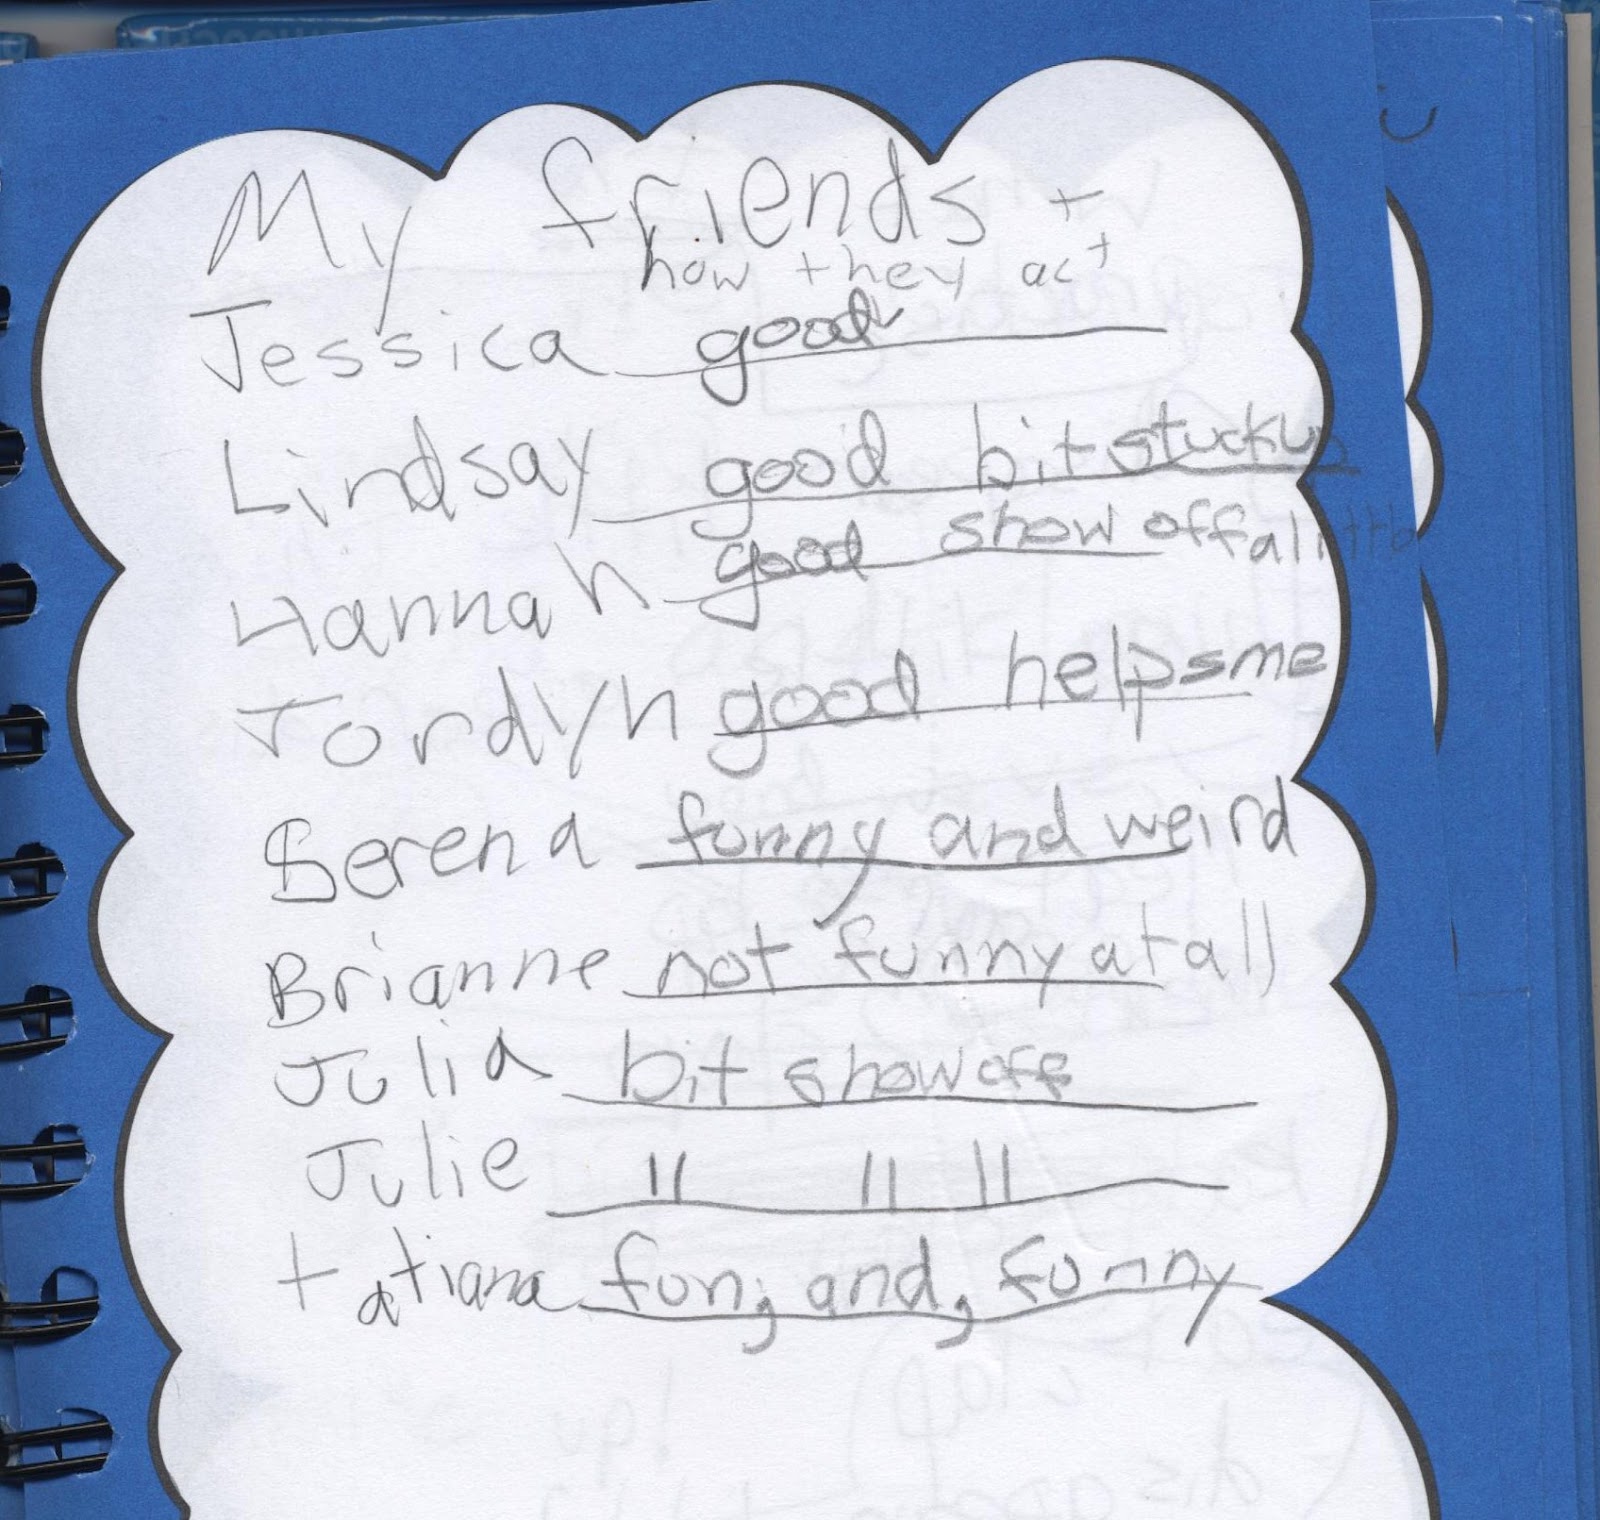 My friends +
how they act
Jessica good
Lindsay good bit stuck up
Hannah good show off a little
Jordyn good helps me
Serena funny and weird
Brianne not funny at all
Julia bit show off
Julie " " "
tatiana fun, and, funny